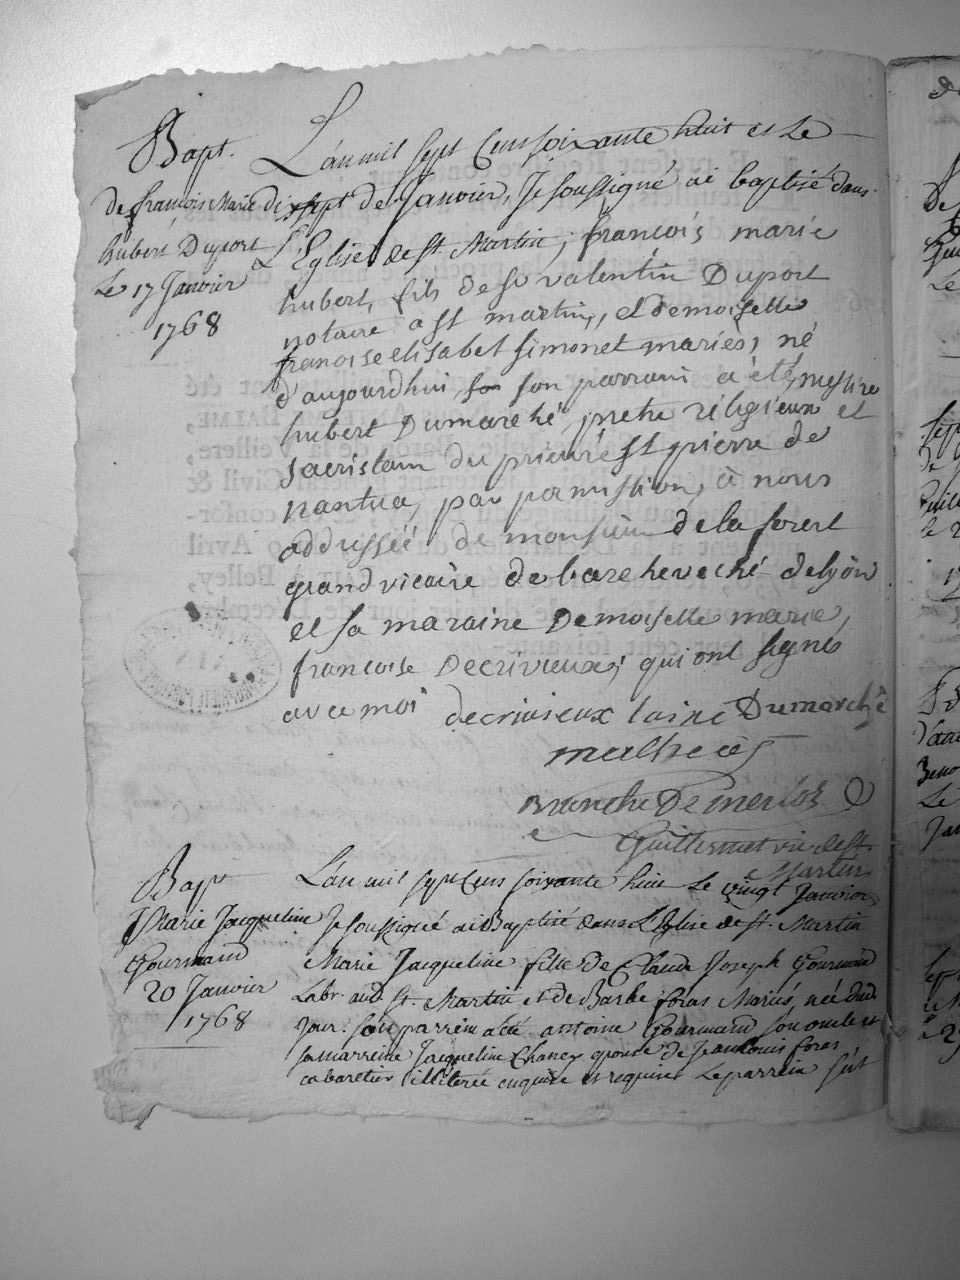 Bapt.
de françois Marie
hubert Duport
Le 17 Janvier
1768
L'an mil sept Cens soixante huit et Le
dixsept de Janvier, Je soussigné ai baptisé dans
L'Eglise de st. Martin, françois marie
hubert, fils de sr valentin Duport
notaire a st martin, et demoiselle
francoise elisabet simonet mariés, né
d'aujourdhui, son parrain a été, messire
hubert Dumarché, pretre réligieux et
sacristain du prieuré st pierre de
nantua, par permission, à nous
addressée de monsieur de la forest
grand vicaire de l'archeveché de lyon
et sa maraine Demoiselle marie
francoise Decrivieux, qui ont signés
avec moi decrivieux lainé Dumarché
Guillermet vic de st
Martin
Bapt
Marie Jacqueline
Gourmand
20 Janvier
1768
L'an mil sept Cens soixante huit Le vingt Janvier
Je soussigné ai Baptisé dans L'Eglise de st. Martin
Marie Jacqueline fille de Claude Joseph Gourmand
Labr. aud. st. Martin et de Barbe foras Mariés, née dud.
Jour. son parrein a été antoine Gourmand son oncle et
sa marreine Jacqueline Chaney epouse de Jean Louis foras
cabaretier illiterée enquise et requise Le parrein